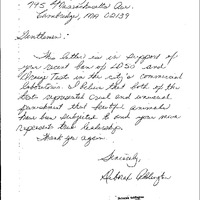 795 Massachusetts Ave.
Cambridge, MA 02139
Gentlemen:
This letter is in support of
your recent ban of LD50 and
Draize Test in the city's commercial
laboratories. I believe that both of the
tests represent cruel and unusual
punishment that
have been subjected to and your move
represents true leadership.
Thank you again.
Sincerely,
Deborah